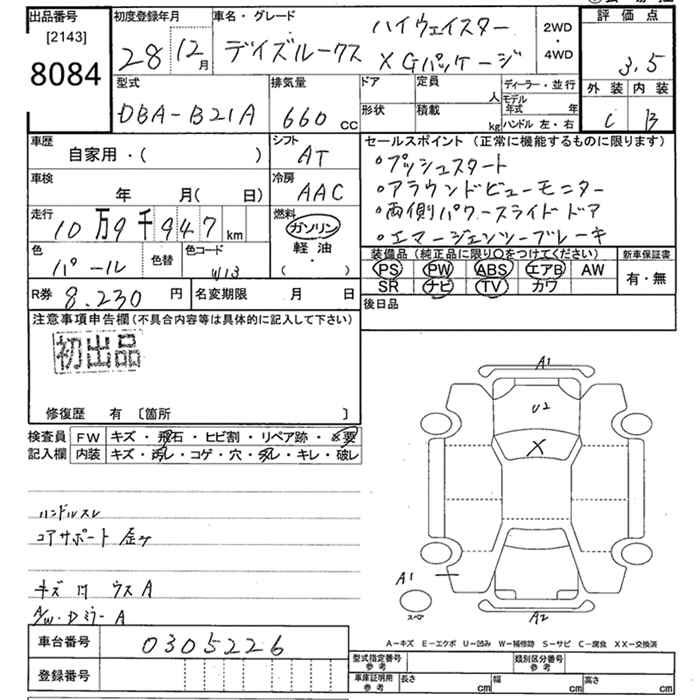 出品番号 初度登録年月 車名・グレード 評価点
[2143] ハイウェイスター 2WD
8084 28 12月 デイズルークス X Gパッケージ 4WD 3.5
型式 排気量 ドア 定員 人 ディーラー・並行 外装 内装
DBA-B21A 660 CC 形状 積載 kg モデル年式 年 C B
ハンドル 左・右
車歴 シフト セールスポイント (正常に機能するものに限ります)
自家用・( ) AT •プッシュスタート
車検 冷房 •アラウンドビューモニター
年 月( 日) AAC •両側パワースライドドア
走行 燃料 •エマージェンシーブレーキ
10万9千947km ガソリン
軽油
・( )
色 色替 色コード 装備品 (純正品に限り○をつけてください) 新車保証書
パール W13 PS PW ABS エアB AW 有・無
SR ナビ TV カワ
R券 8.230円 名変期限 月 日 後日品
注意事項申告欄(不具合内容等は具体的に記入して下さい)
初出品
修復歴 有 [箇所 ]
検査員 FW キズ・飛石・ヒビ割・リペア跡・要
記入欄 内装 キズ・汚レ・コゲ・穴・スレ・キレ・破レ
ハンドルスレ
コアサポート
キズ 凹 ウス A
A/W・Dミラー A
車台番号 0305226
登録番号
A1
U2
X
A1
スペア
A2
A－キズ E－エクボ U－凹み W－補修跡 S－サビ C－腐食 XX－交換済
型式指定番号 参考 類別区分番号 参考
車庫証明用 参考 長さ cm 幅 cm 高さ cm